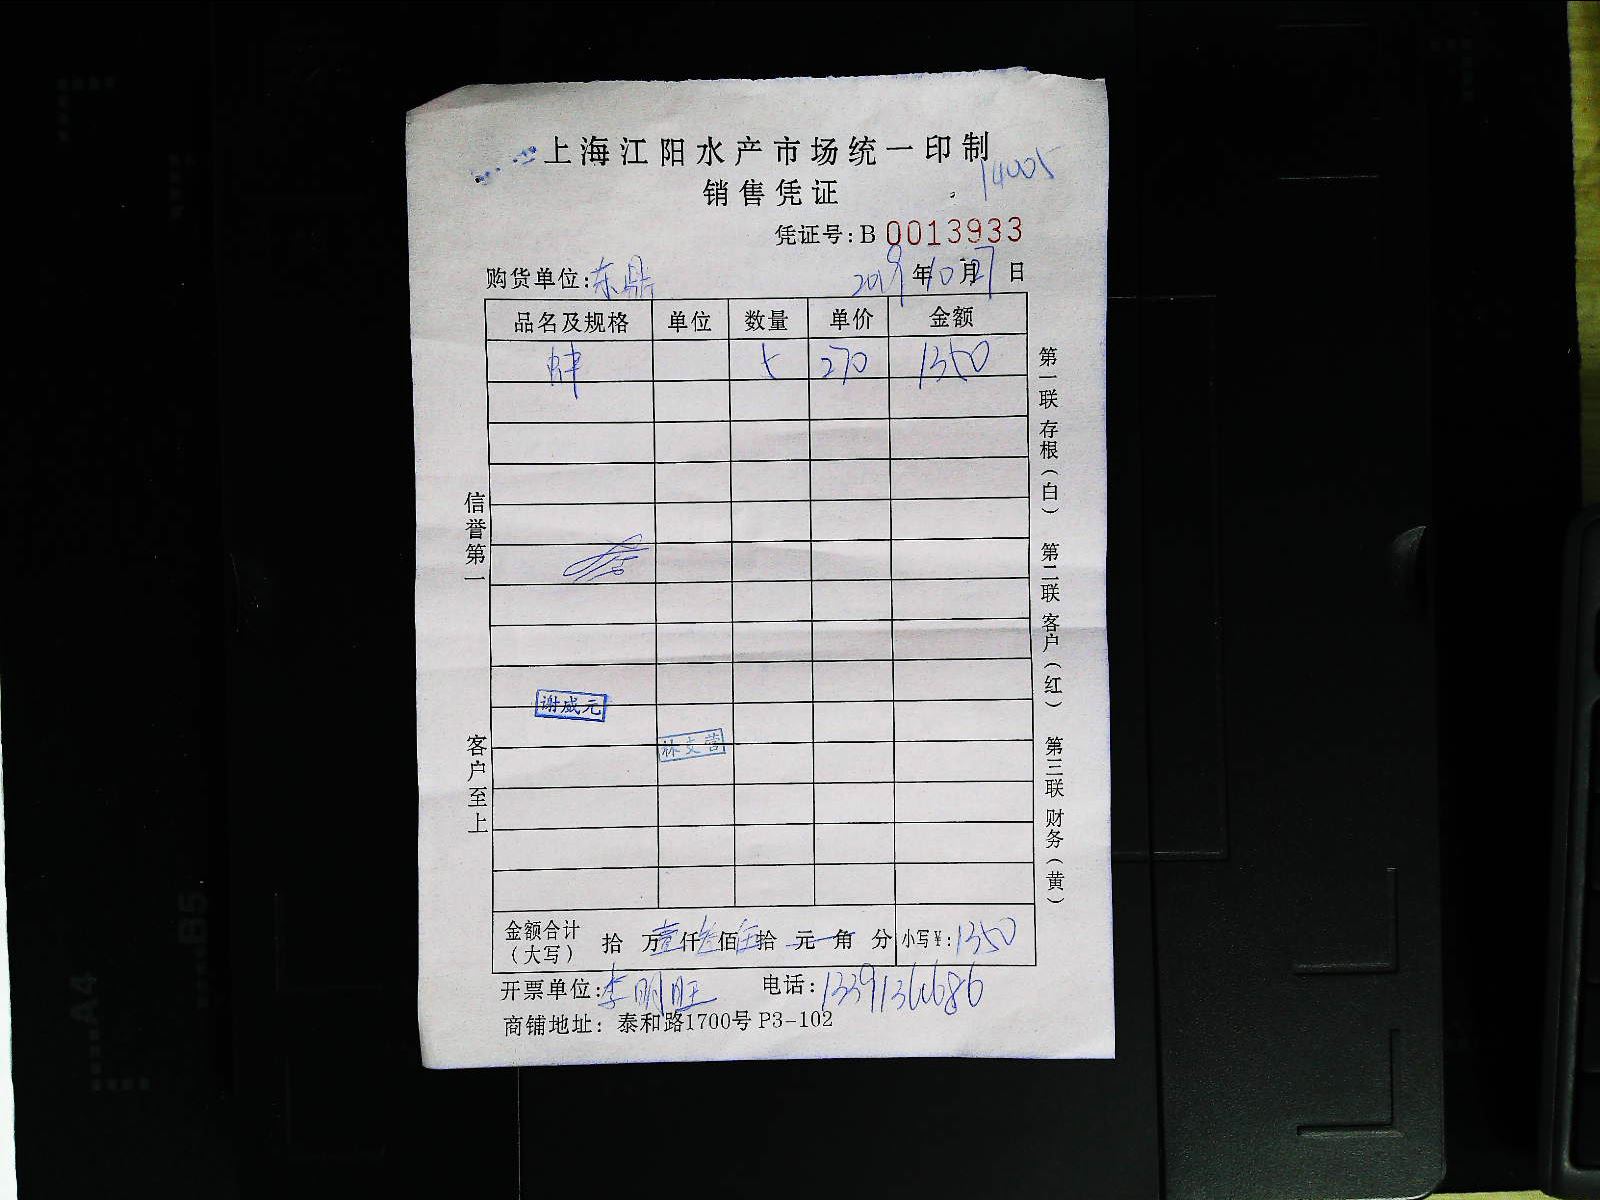 上海江阳水产市场统一印制
14005
销售凭证
凭证号:B 0013933
购货单位:东鼎 2019年10月27日
品名及规格 单位 数量 单价 金额
5 270 1350
信誉第一
客户至上
第一联 存根(白) 第二联 客户(红) 第三联 财务(黄)
谢威元
林文营
金额合计(大写) 拾 万壹仟叁佰伍拾 元 角 分 小写¥:1350
开票单位:李明旺 电话:
商铺地址: 泰和路1700号 P3-102
A4
B5